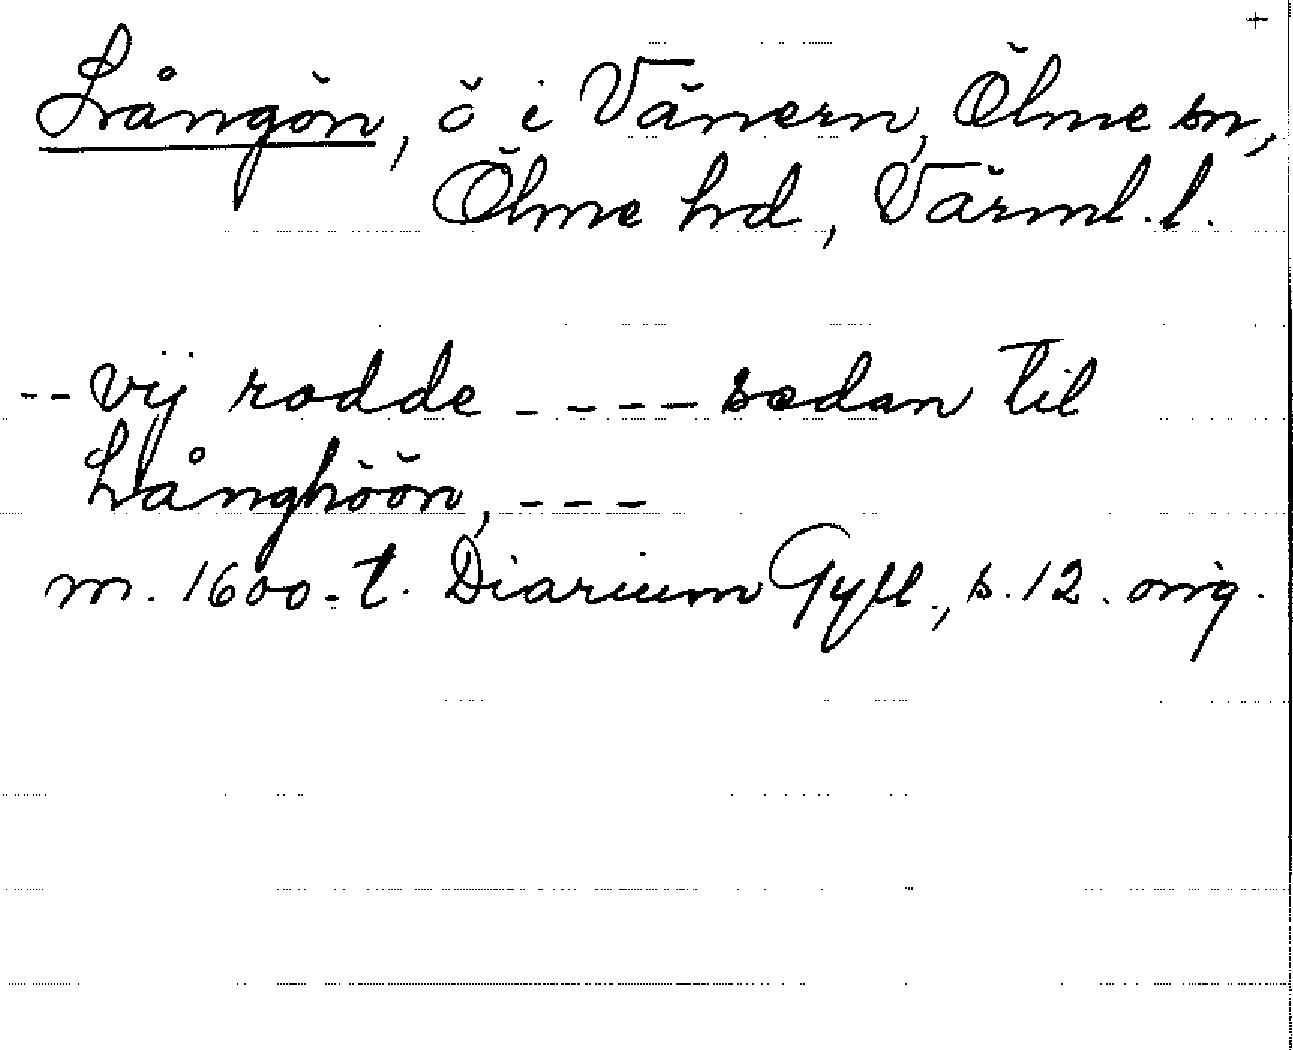 +
Långön, ö i Vänern, Ölme sn,
Ölme hd, Värml. l.
-- vij rodde ---- sedan til
Långhöön, ---
m. 1600-t. Diarium Gyll., s. 12. orig.